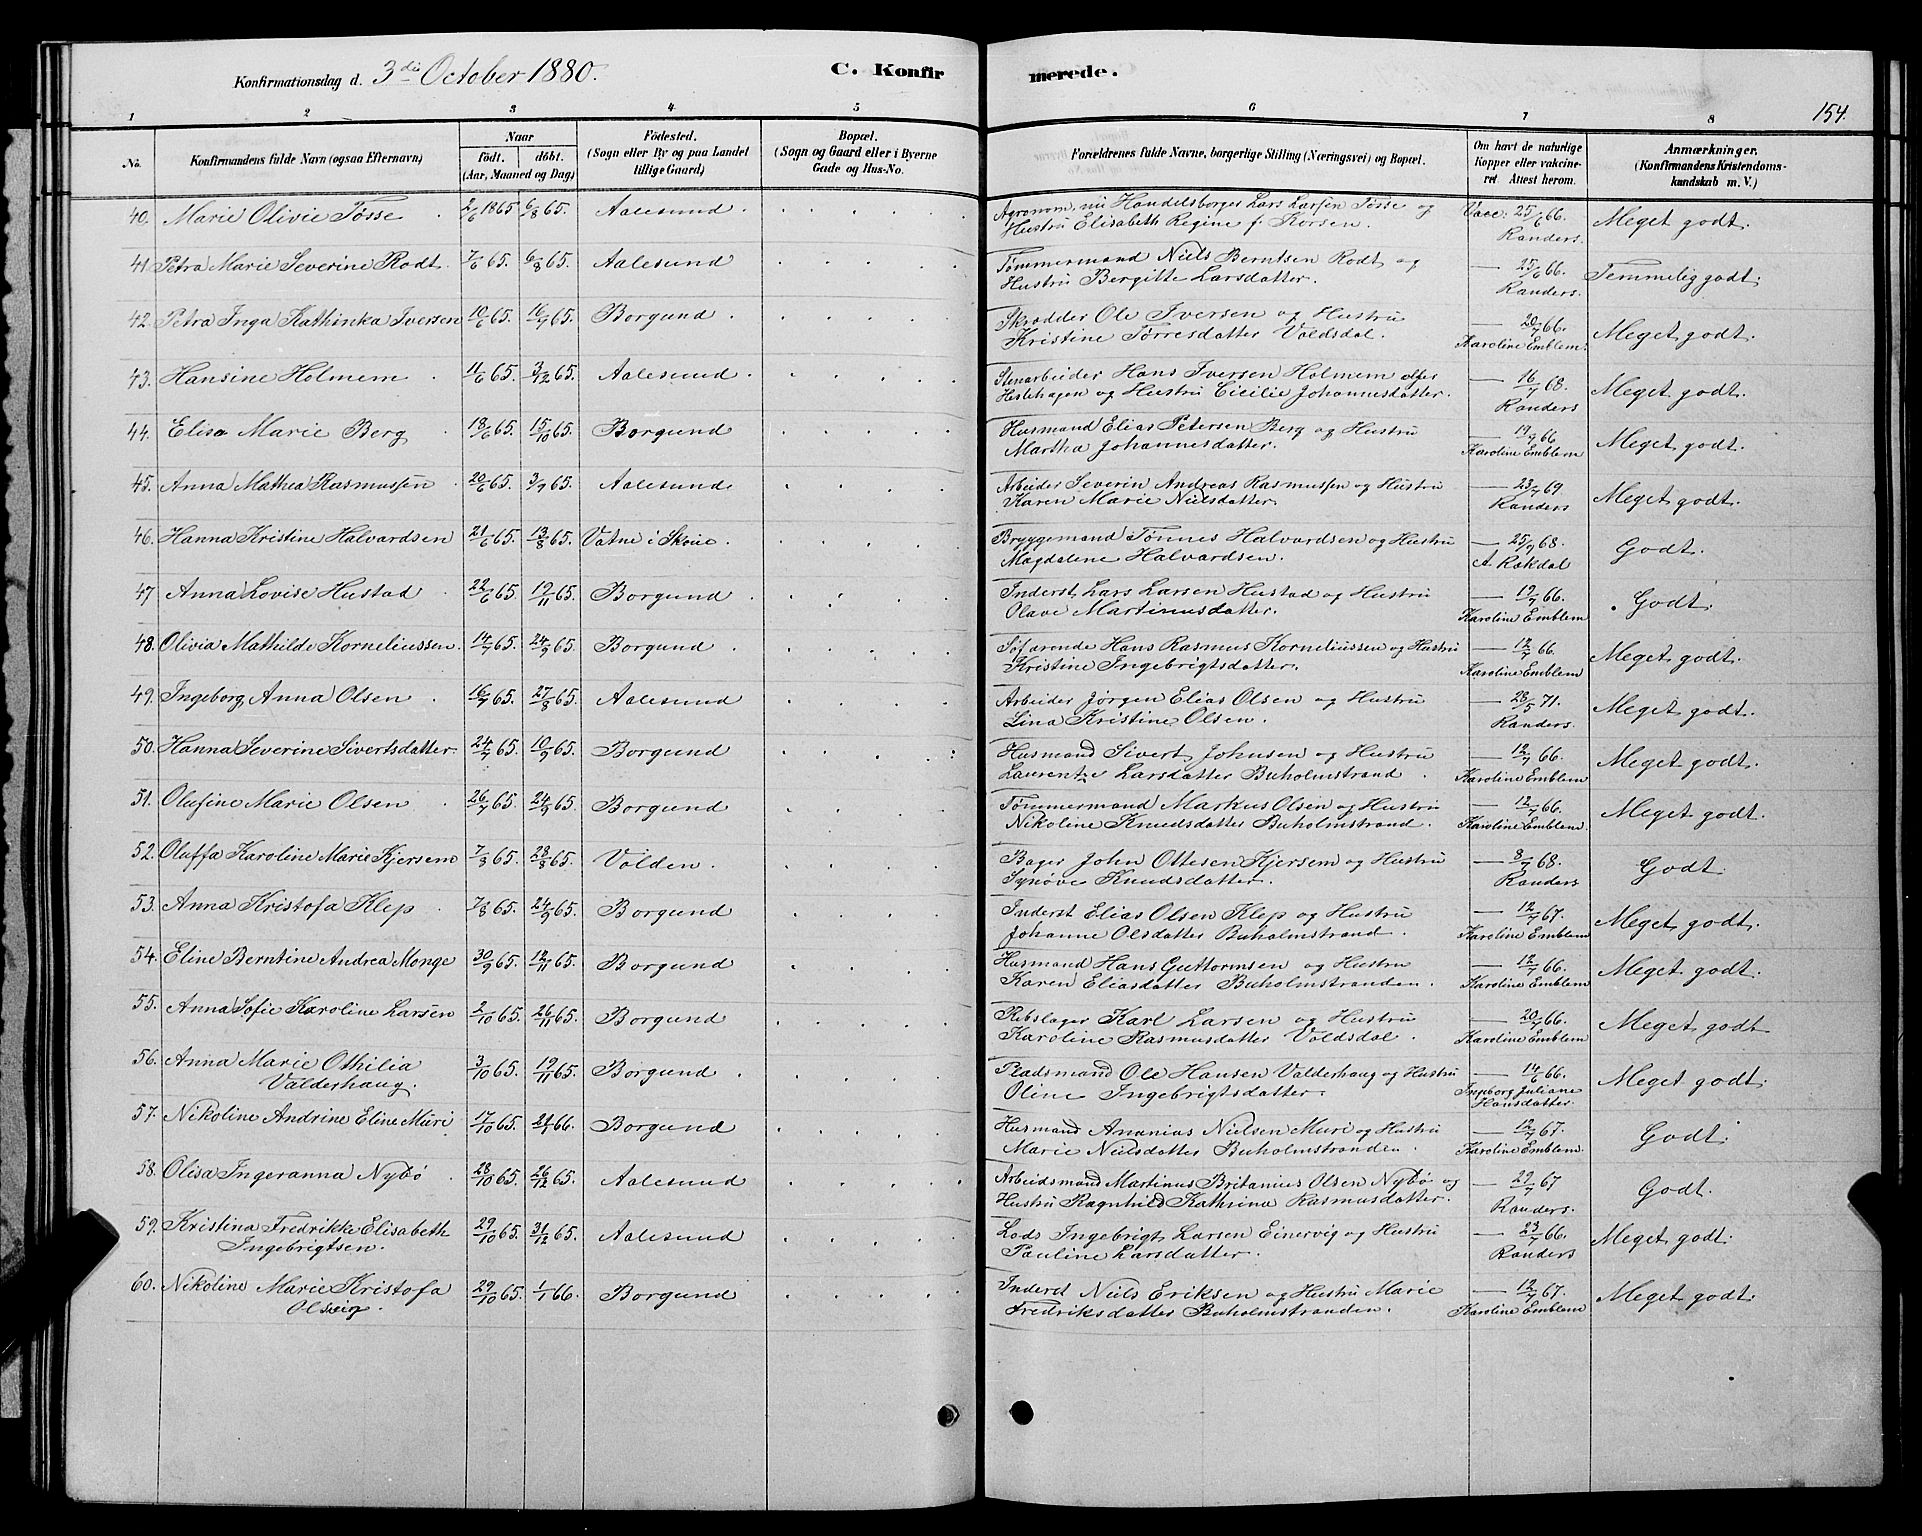 Konfirmationsdag d. 3die October 1880. C. Konfirmerede.
154.
1 2 3 4 5 6 7 8
No. Konfirmandens fulde Navn (ogsaa Efternavn) Naar födt. döbt. (Aar, Maaned og Dag) Födested. (Sogn eller By og paa Landet tillige Gaard) Bopæl. (Sogn og Gaard eller i Byerne Gade og Hus-No. Forældrenes fulde Navne, borgerlige Stilling (Næringsvei) og Bopæl. Om havt de naturlige Kopper eller vakcineret. Attest herom. Anmærkninger, (Konfirmandens Kristendomskundskab m. V.)
40. Marie Olivie Tøsse 2/6 1865 6/8 65. Aalesund Agronom, nu Handelsborger Lars Larsen Tøsse og Vacc: 25/6 66. Meget godt.
Hustru Elisabeth Regine f. Korsen. Randers.
41 Petra Marie Severine Rodt. 7/6 65. 6/8 65. Aalesund Tømmermand Niels Berntsen Rodt og — 25/6 66. Temmelig godt.
Hustru Bergitte Larsdatter. Randers.
42. Petra Inga Kathinka Iversen 10/6 65. 16/7 65. Borgund Skrædder Ole Iversen og Hustru — 20/7 66. Meget godt.
Kristine Tørresdatter Voldsdal. Karoline Emblem.
43. Hansine Holmem 11/6 65. 3/12 65. Aalesund Stenarbeider Hans Iversen Holmem — 16/7 68. Meget godt.
og Hustru Cicilie Johannesdatter. Randers
44. Elisa Marie Berg 18/6 65. 15/10 65. Borgund Husmand Elias Petersen Berg og Hustru — 19/9 66 Meget godt.
Martha Johannesdatter. Karoline Emblem
45. Anna Mathea Rasmussen 20/6 65. 3/9 65. Aalesund Arbeider Severin Andreas Rasmussen og Hustru — 23/7 69 Meget godt.
Karen Marie Nielsdatter. Randers
46. Hanna Kristine Halvardsen 21/6 65. 13/8 65. Vatne i Bryggemand Tønnes Halvardsen og Hustru — 25/9 68. Godt.
Magdalene Halvardsen. A Rokdal
47 Anna Lovise Hustad 22/6 65. 19/11 65. Borgund Inderst Lars Larsen Hustad og Hustru — 19/7 66. Godt.
Olave Martinusdatter. Karoline Emblem
48. Olivia Mathilde Korneliussen 14/7 65. 24/9 65. Borgund Søfarende Hans Rasmus Korneliussen og Hustru — 12/7 66. Meget godt.
Kristine Ingebrigtsdatter. Karoline Emblem
49. Ingeborg Anna Olsen 16/7 65. 27/8 65. Aalesund Arbeider Jørgen Elias Olsen og Hustru — 23/5 71. Meget godt.
Lina Kristine Olsen. Randers.
50. Hanna Severine Sivertsdatter 24/7 65. 10/9 65. Borgund Husmand Sivert Johnsen og Hustru — 12/7 66. Meget godt.
Laurentze Larsdatter Buholmstrand Karoline Emblem
51. Olufine Marie Olsen 26/7 65. 24/9 65. Borgund Tømmermand Markus Olsen og Hustru — 12/7 66. Meget godt.
Nikoline Knudsdatter Buholmstrand. Karoline Emblem.
52. Oluffa Karoline Marie Kjersem 7/8 65. 28/8 65. Volden. Bager John Ottesen Kjersem og Hustru — 8/7 68. Godt.
Synøve Knudsdatter. Randers
53. Anna Kristofa Klep 7/8 65. 24/9 65. Borgund Inderst Elias Olsen Klep og Hustru — 12/7 67. Meget godt.
Johanne Olsdatter Buholmstrand. Karoline Emblem
54. Eline Berntine Andrea Monge 30/9 65. 12/11 65. Borgund Husmand Hans Guttormsen og Hustru — 12/7 66. Meget godt.
Karen Eliasdatter Buholmstranden. Karoline Emblem
55. Anna Sofie Karoline Larsen 2/10 65. 26/11 65. Borgund Rebslager Karl Larsen og Hustru — 20/7 66. Meget godt
Karoline Rasmusdatter Voldsdal. Karoline Emblem
56. Anna Marie Othilia 3/10 65. 19/11 65. Borgund Pladsmand Ole Hansen Valderhaug og Hustru — 14/6 66. Meget godt.
Valderhaug. Oline Ingebrigtsdatter. Ingeborg Juliane
Hansdatter.
57. Nikoline Andrine Eline Muri 17/10 65. 21/1 66. Borgund Husmand Ananias Nielsen Muri og Hustru — 12/7 67. Godt
Marie Nielsdatter Buholmstranden. Karoline Emblem.
58. Olisa Ingeranna Nybø 28/10 65. 26/12 65. Aalesund Arbeidsmand Martinus Britanius Olsen Nybø og — 29/7 67 Godt.
Hustru Ragnhild Kathrina Rasmusdatter. Randers.
59. Kristina Fredrikke Elisabeth 29/10 65. 31/12 65. Aalesund Lods Ingebrigt Larsen Einervig og Hustru — 23/7 66. Meget godt.
Ingebrigtsen. Pauline Larsdatter. Randers
60. Nikoline Marie Kristofa 29/10 65. 1/1 66. Borgund Inderst Niels Eriksen og Hustru Marie — 12/7 67. Meget godt.
Fredriksdatter Buholmstranden. Karoline Emblem